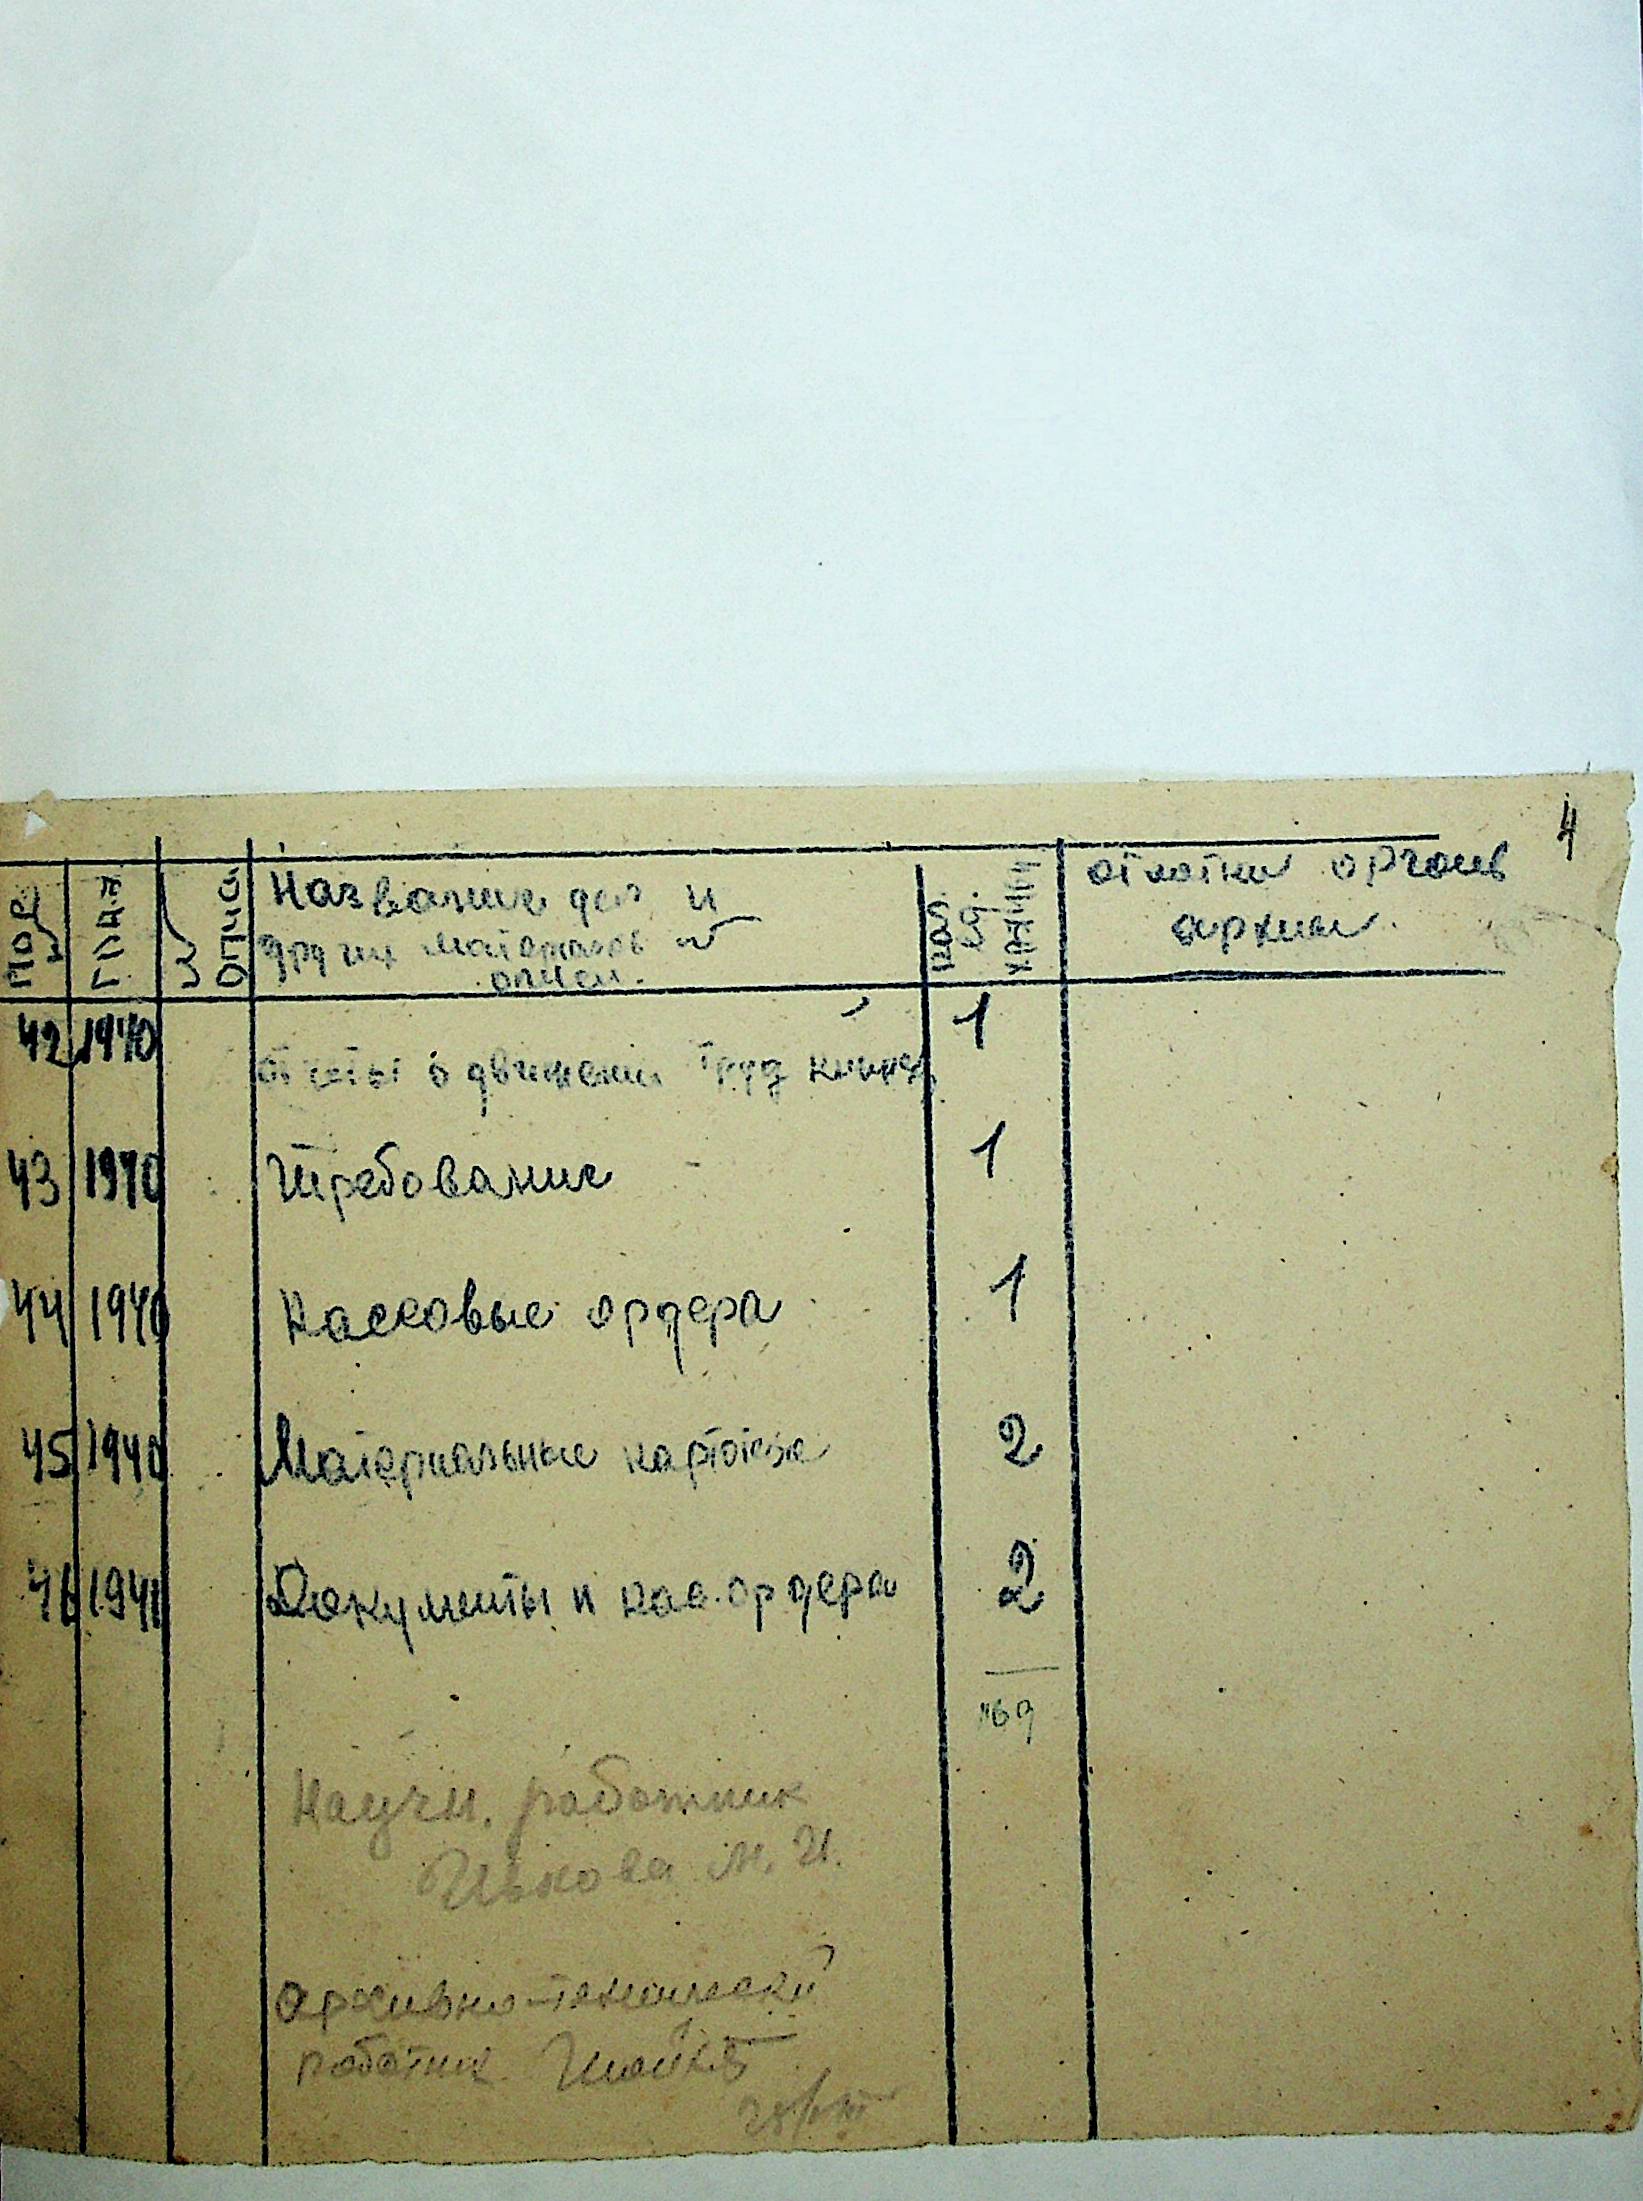 4
Название дел и
других материалов
описи.
отметки органов
архива
42 1940 1
отчеты о движении труд книжек
43 1940 Требование 1
44 1940 Кассовые ордера 1
45 1940 Материальные картотеки 2
46 1941 Документы и кас. ордера 2
169
Научн. работник
М. И.
Архивно-технический
работник